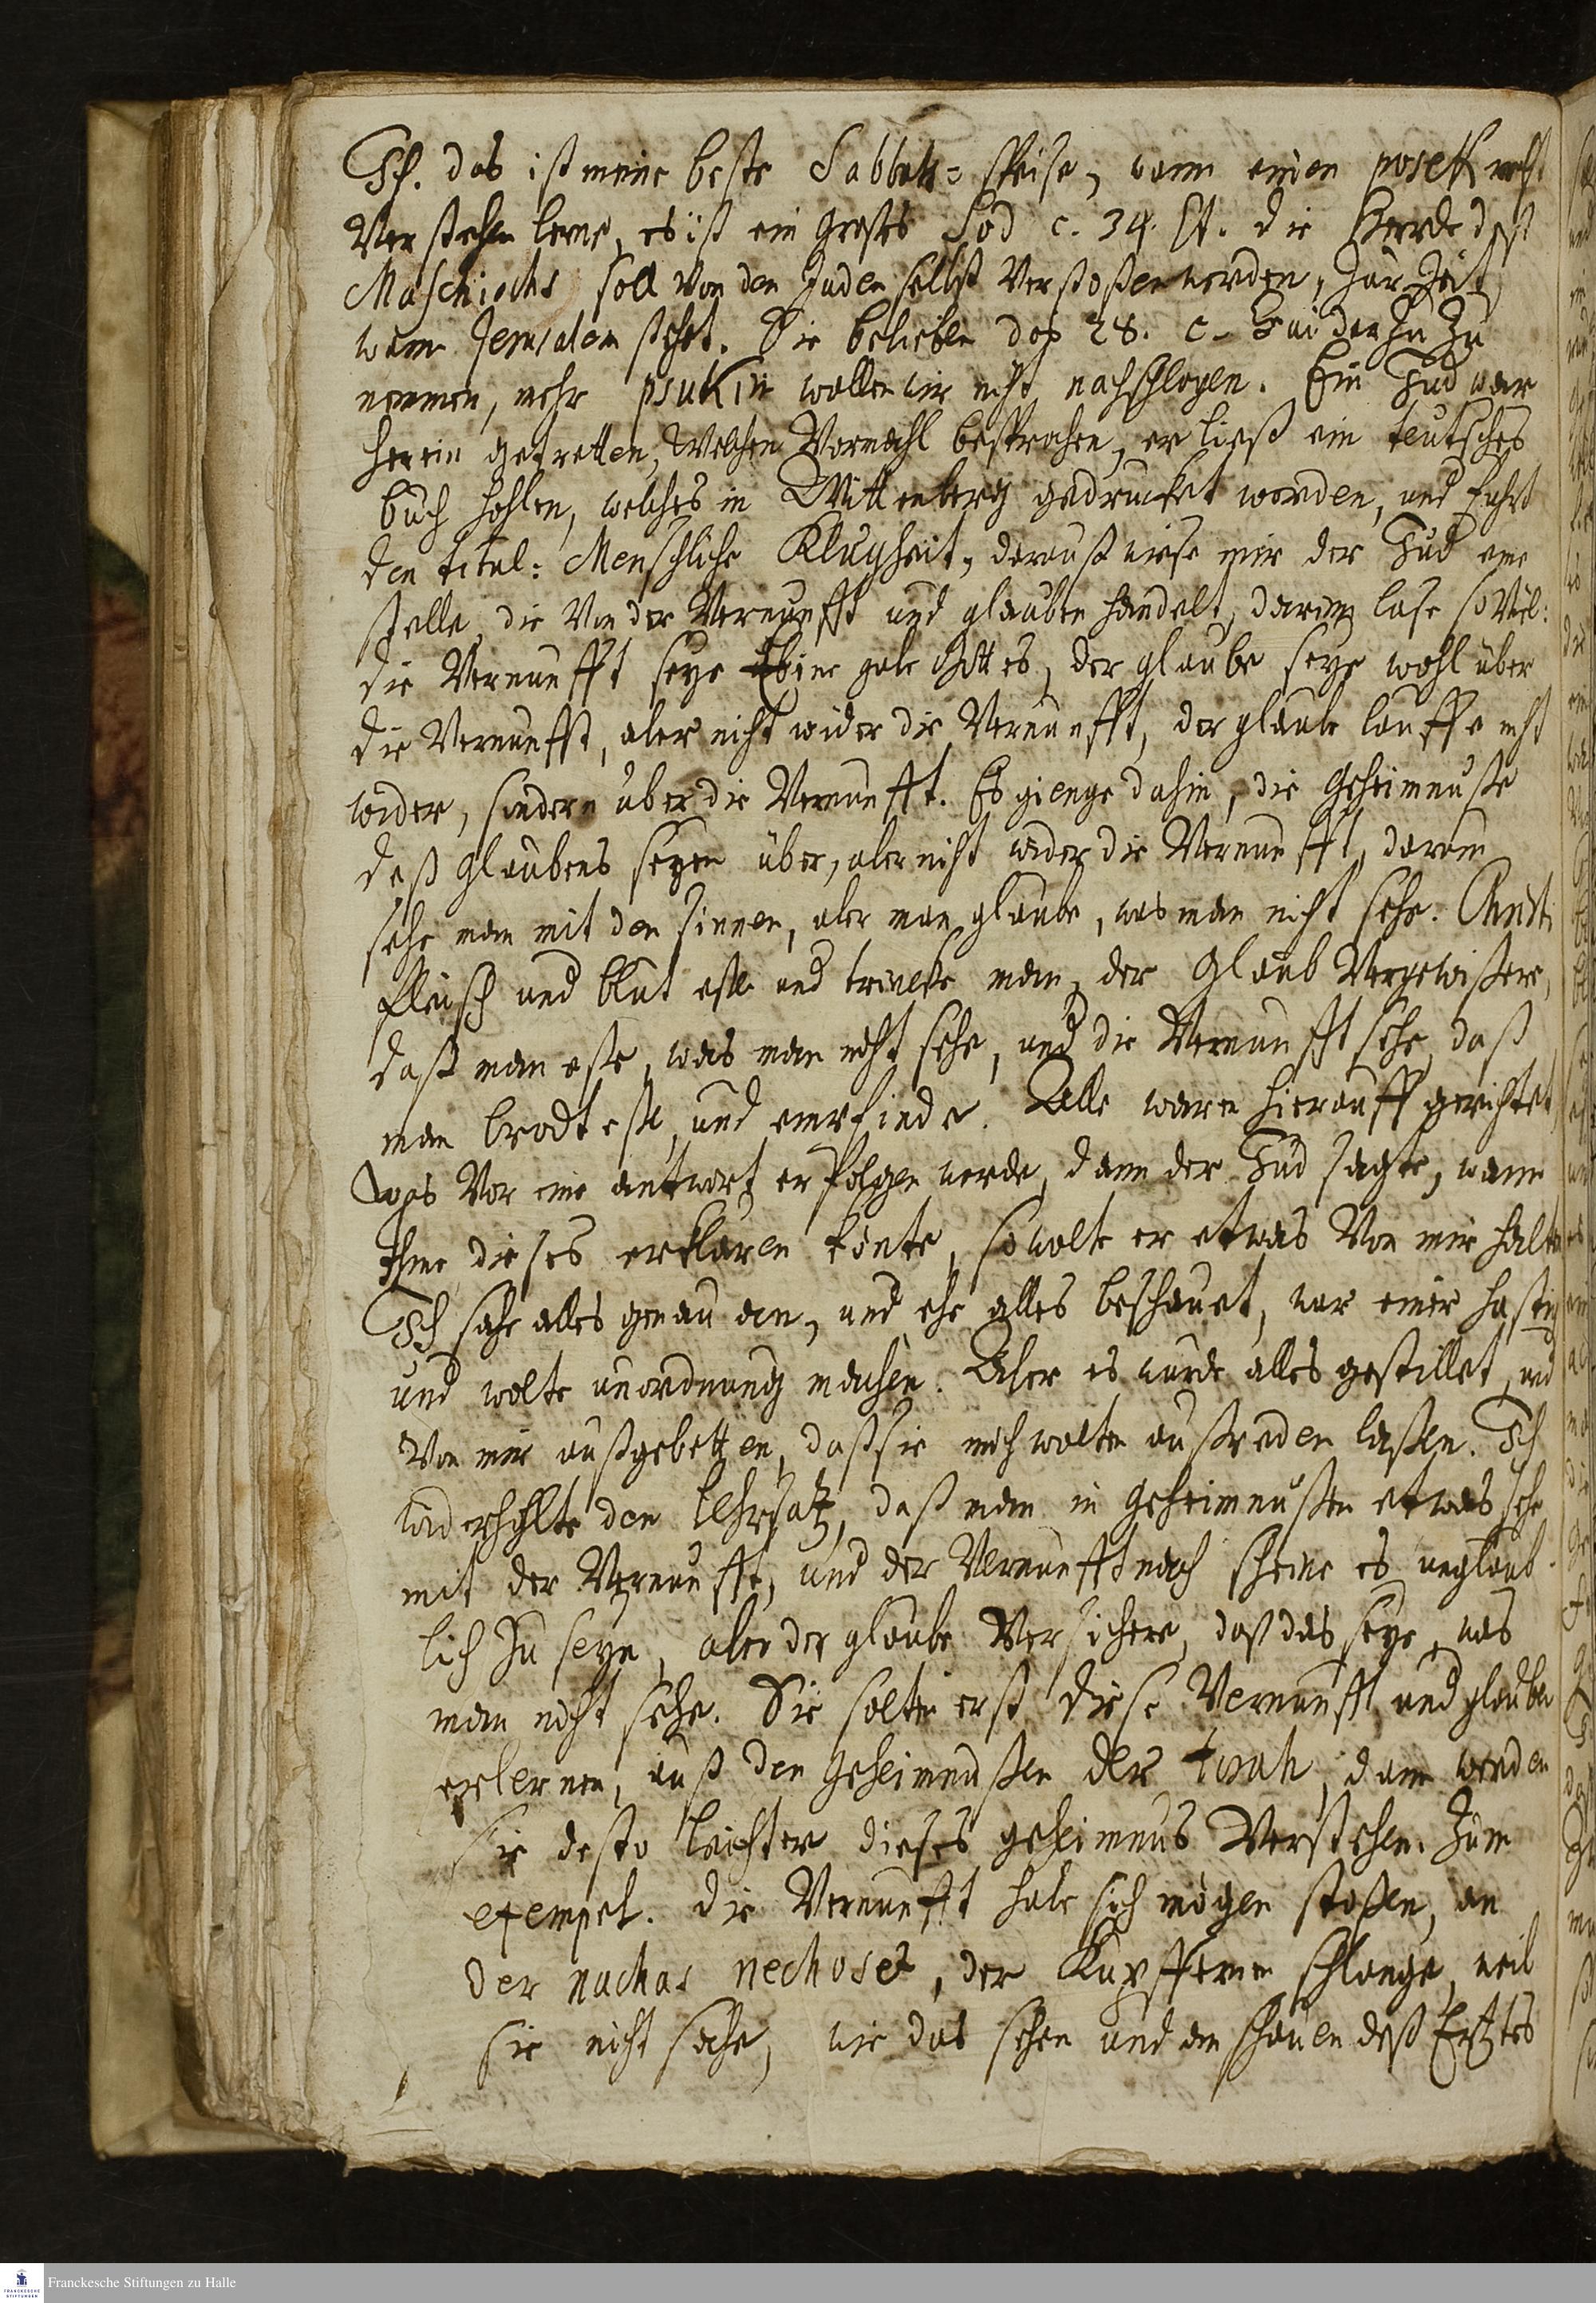 Ich. das ist meine beste Sabbaths=speise, wann einen posuk recht
Verstehen lerne, es ist ein großes Sod c. 34. Die Heerde deß
Maschiachs soll von den Juden selbst Verstoßen werden, zur Zeit
wann Jerusalem stehet. Sie belieben das 28. c. darzu zu
nemmen, mehr psukim wollen wir nicht nachschlagen. Ein Jud war
herein getretten, Welchen Vormahl besprochen, er ließ ein teutsches
buch hohlen, welches in Wittenberg gedrucket worden, und führt
den titul: Menschliche Klugheit, darauß wiese mir der Jud eine
stelle, die Von der Vernunfft und glauben handelt, darinn lase so viel:
die Vernunfft seye Eine gabe Gottes, der glaube seye wohl über
die Vernunfft, aber nicht wider die Vernunfft, der glaube lauffe nicht
wider, sondern über die Vernunfft. Es gienge dahin, die Geheimnuße
deß Glaubens seyen über, aber nicht wider die Vernunfft, darum
sehe man mit den sinnen, aber man glaube, was man nicht sehe. Christi
fleisch und blut eße und trincke man, der Glaub Vergewißere,
daß man eße, was man nicht sehe, und die Vernunfft sehe, daß
man brodt eße, und empfinde. Alle waren hierauff gerichtet,
was Vor eine antwort erfolgen werde, dann der Jud sagte, wann
Ihme dieses erklären könte, so wolte er etwas Von mir halten
Ich sahe alles genau an, und ehe alles beschauet, war einer hastig
und wolte unordnung machen. Aber es wurde alles gestillet, und
Von mir außgebetten, daß sie mich wolten außreden laßen. Ich
widerhohlte den Lehrsatz, daß man in Geheimnußen etwas sehe
mit der Vernunfft, und der Vernunfft nach scheine es unglaub-
lich zu seyn, aber der glaube Versichere, daß das seye, was
man nicht sehe. Sie solten erst diese Vernunfft und glauben
erlernen, auß den Geheimnußen der torah, dann werden
sie desto leichter dieses geheimnus Verstehen. Zum
exempel. die Vernunfft habe sich mögen stoßen, an
der nachas nechoses, der Kupffernen schlange, weil
sie nicht sahe, wie das sehen und anschauen deß Ertztes
Franckesche Stiftungen zu Halle